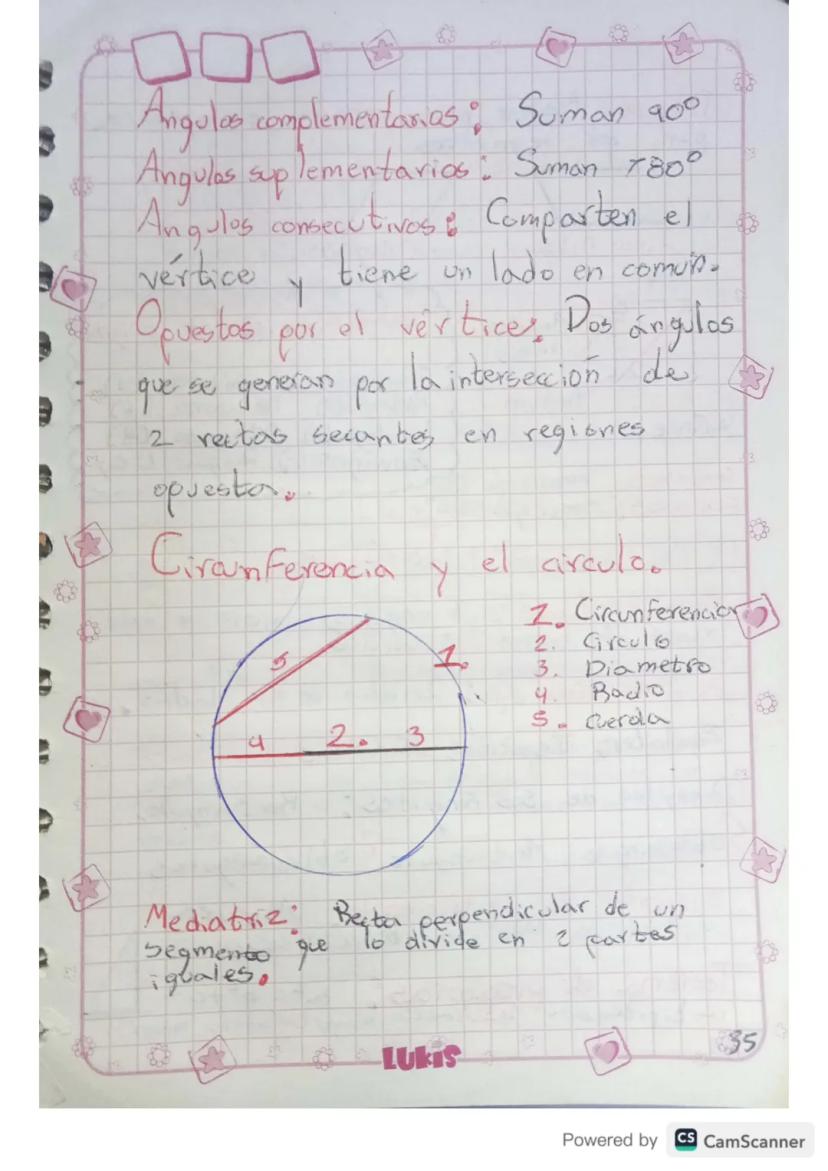 Angulos complementarios: Suman 90°
Angulos suplementarios: Suman 180°
Angulos consecutivos: Comparten el
vértice y tiene un lado en común.
Opuestos por el vértice. Dos ángulos
que se generan por la intersección de
2 rectas secantes en regiones
opuesta.
Circunferencia y el circulo.
1. Circunferencia
2. Circulo
3. Diametro
4. Radio
5. Cuerda
5
1.
4 2. 3
Mediatriz: Recta perpendicular de un
segmento que lo divide en 2 partes
iguales.
LUKIS
35
Powered by CS CamScanner